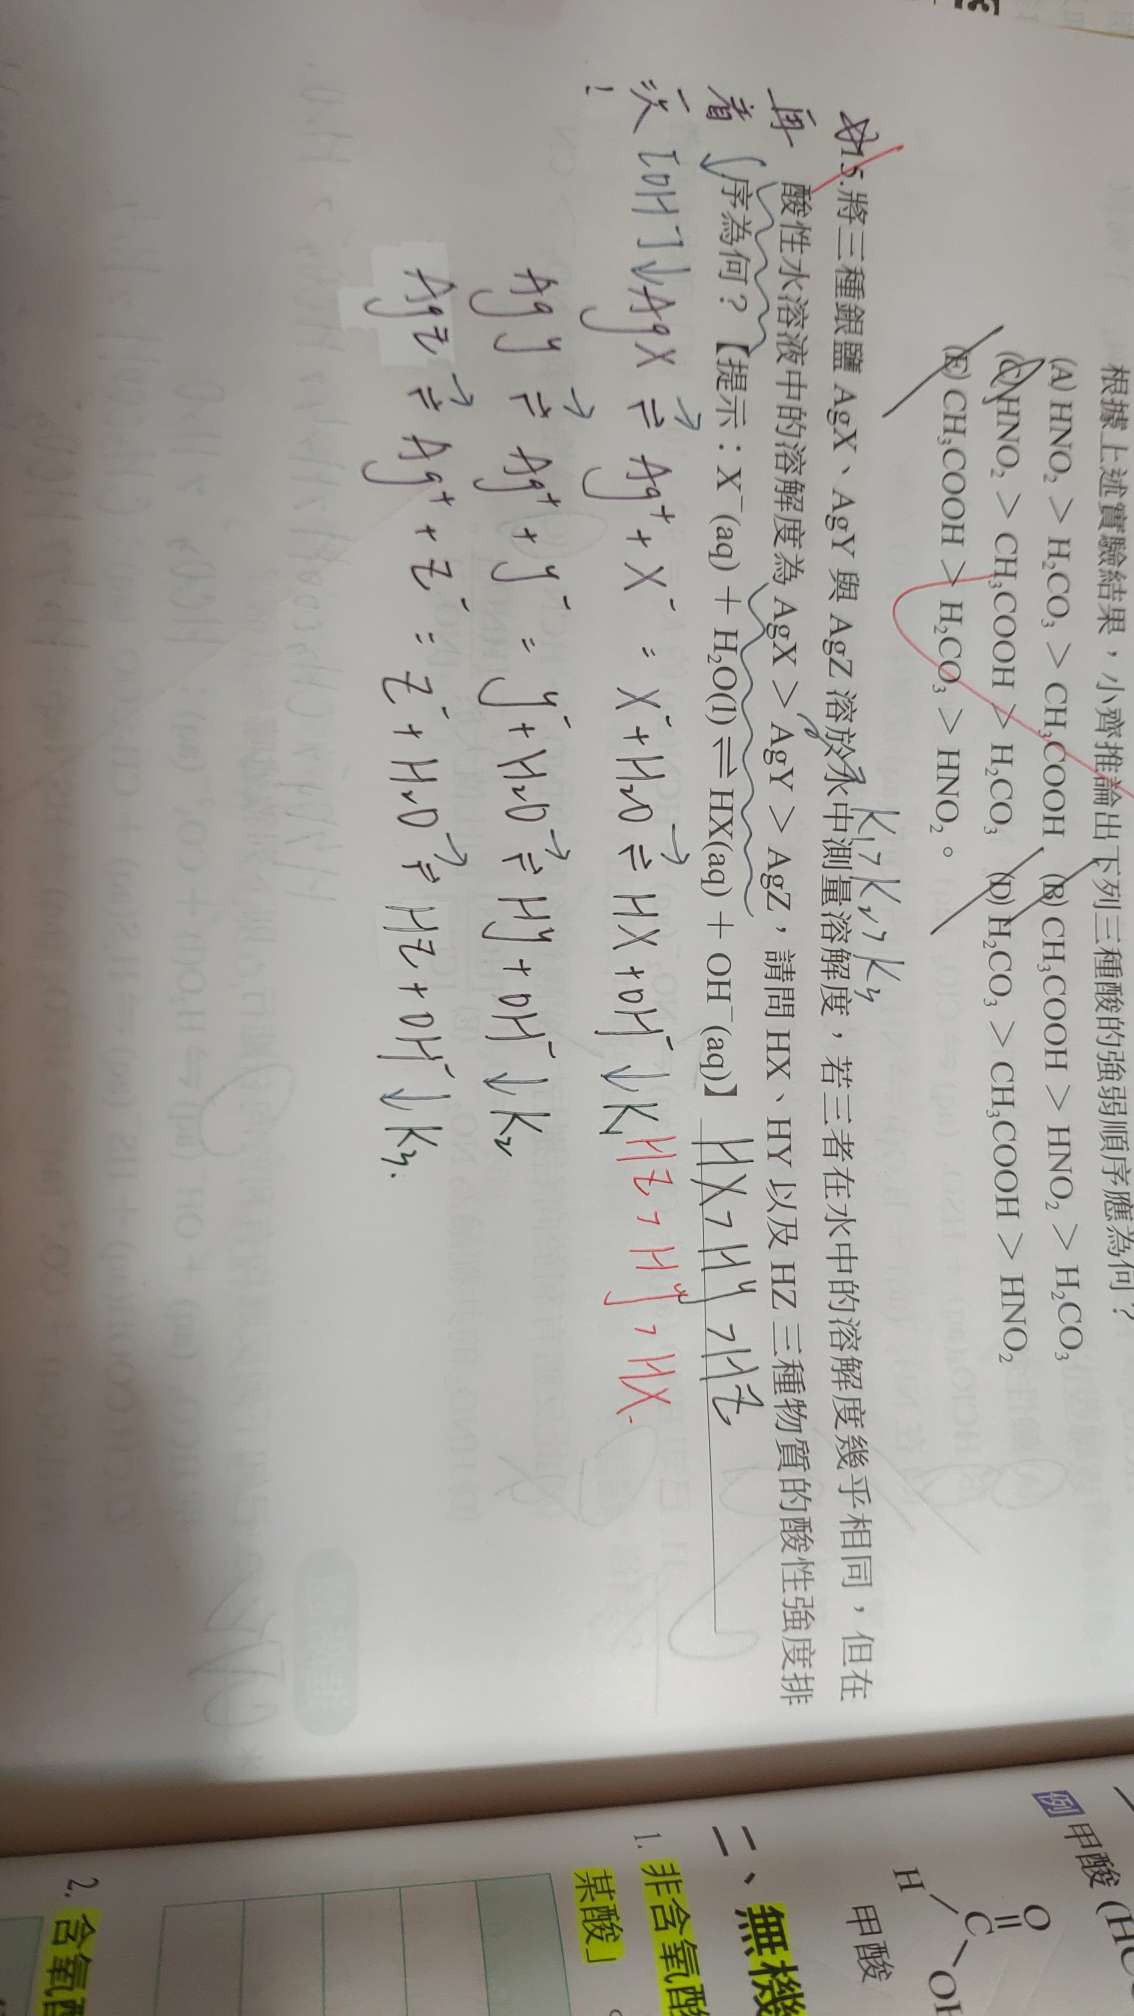 根據上述實驗結果，小齊推論出下列三種酸的強弱順序應為何？
(A) HNO₂ > H₂CO₃ > CH₃COOH (B) CH₃COOH > HNO₂ > H₂CO₃
(C) HNO₂ > CH₃COOH > H₂CO₃ (D) H₂CO₃ > CH₃COOH > HNO₂
(E) CH₃COOH > H₂CO₃ > HNO₂。
K₁>K₂>K₃
15.將三種銀鹽 AgX、AgY 與 AgZ 溶於水中測量溶解度，若三者在水中的溶解度幾乎相同，但在
酸性水溶液中的溶解度為 AgX > AgY > AgZ，請問 HX、HY 以及 HZ 三種物質的酸性強度排
序為何？【提示：X⁻(aq) + H₂O(l) ⇌ HX(aq) + OH⁻(aq)】 HX>HY>HZ
再
看
一
次
!
[OH⁻]↓ AgX ⇌ Ag⁺ + X⁻ = X⁻ + H₂O ⇌ HX + OH⁻↓ K₁ HZ > HY > HX.
AgY ⇌ Ag⁺ + Y⁻ = Y⁻ + H₂O ⇌ HY + OH⁻↓ K₂
AgZ ⇌ Ag⁺ + Z⁻ = Z⁻ + H₂O ⇌ HZ + OH⁻↓ K₃.
例 甲酸
O
H C
甲酸
二、無機
1. 非含氧酸
某酸」
2. 含氧酸